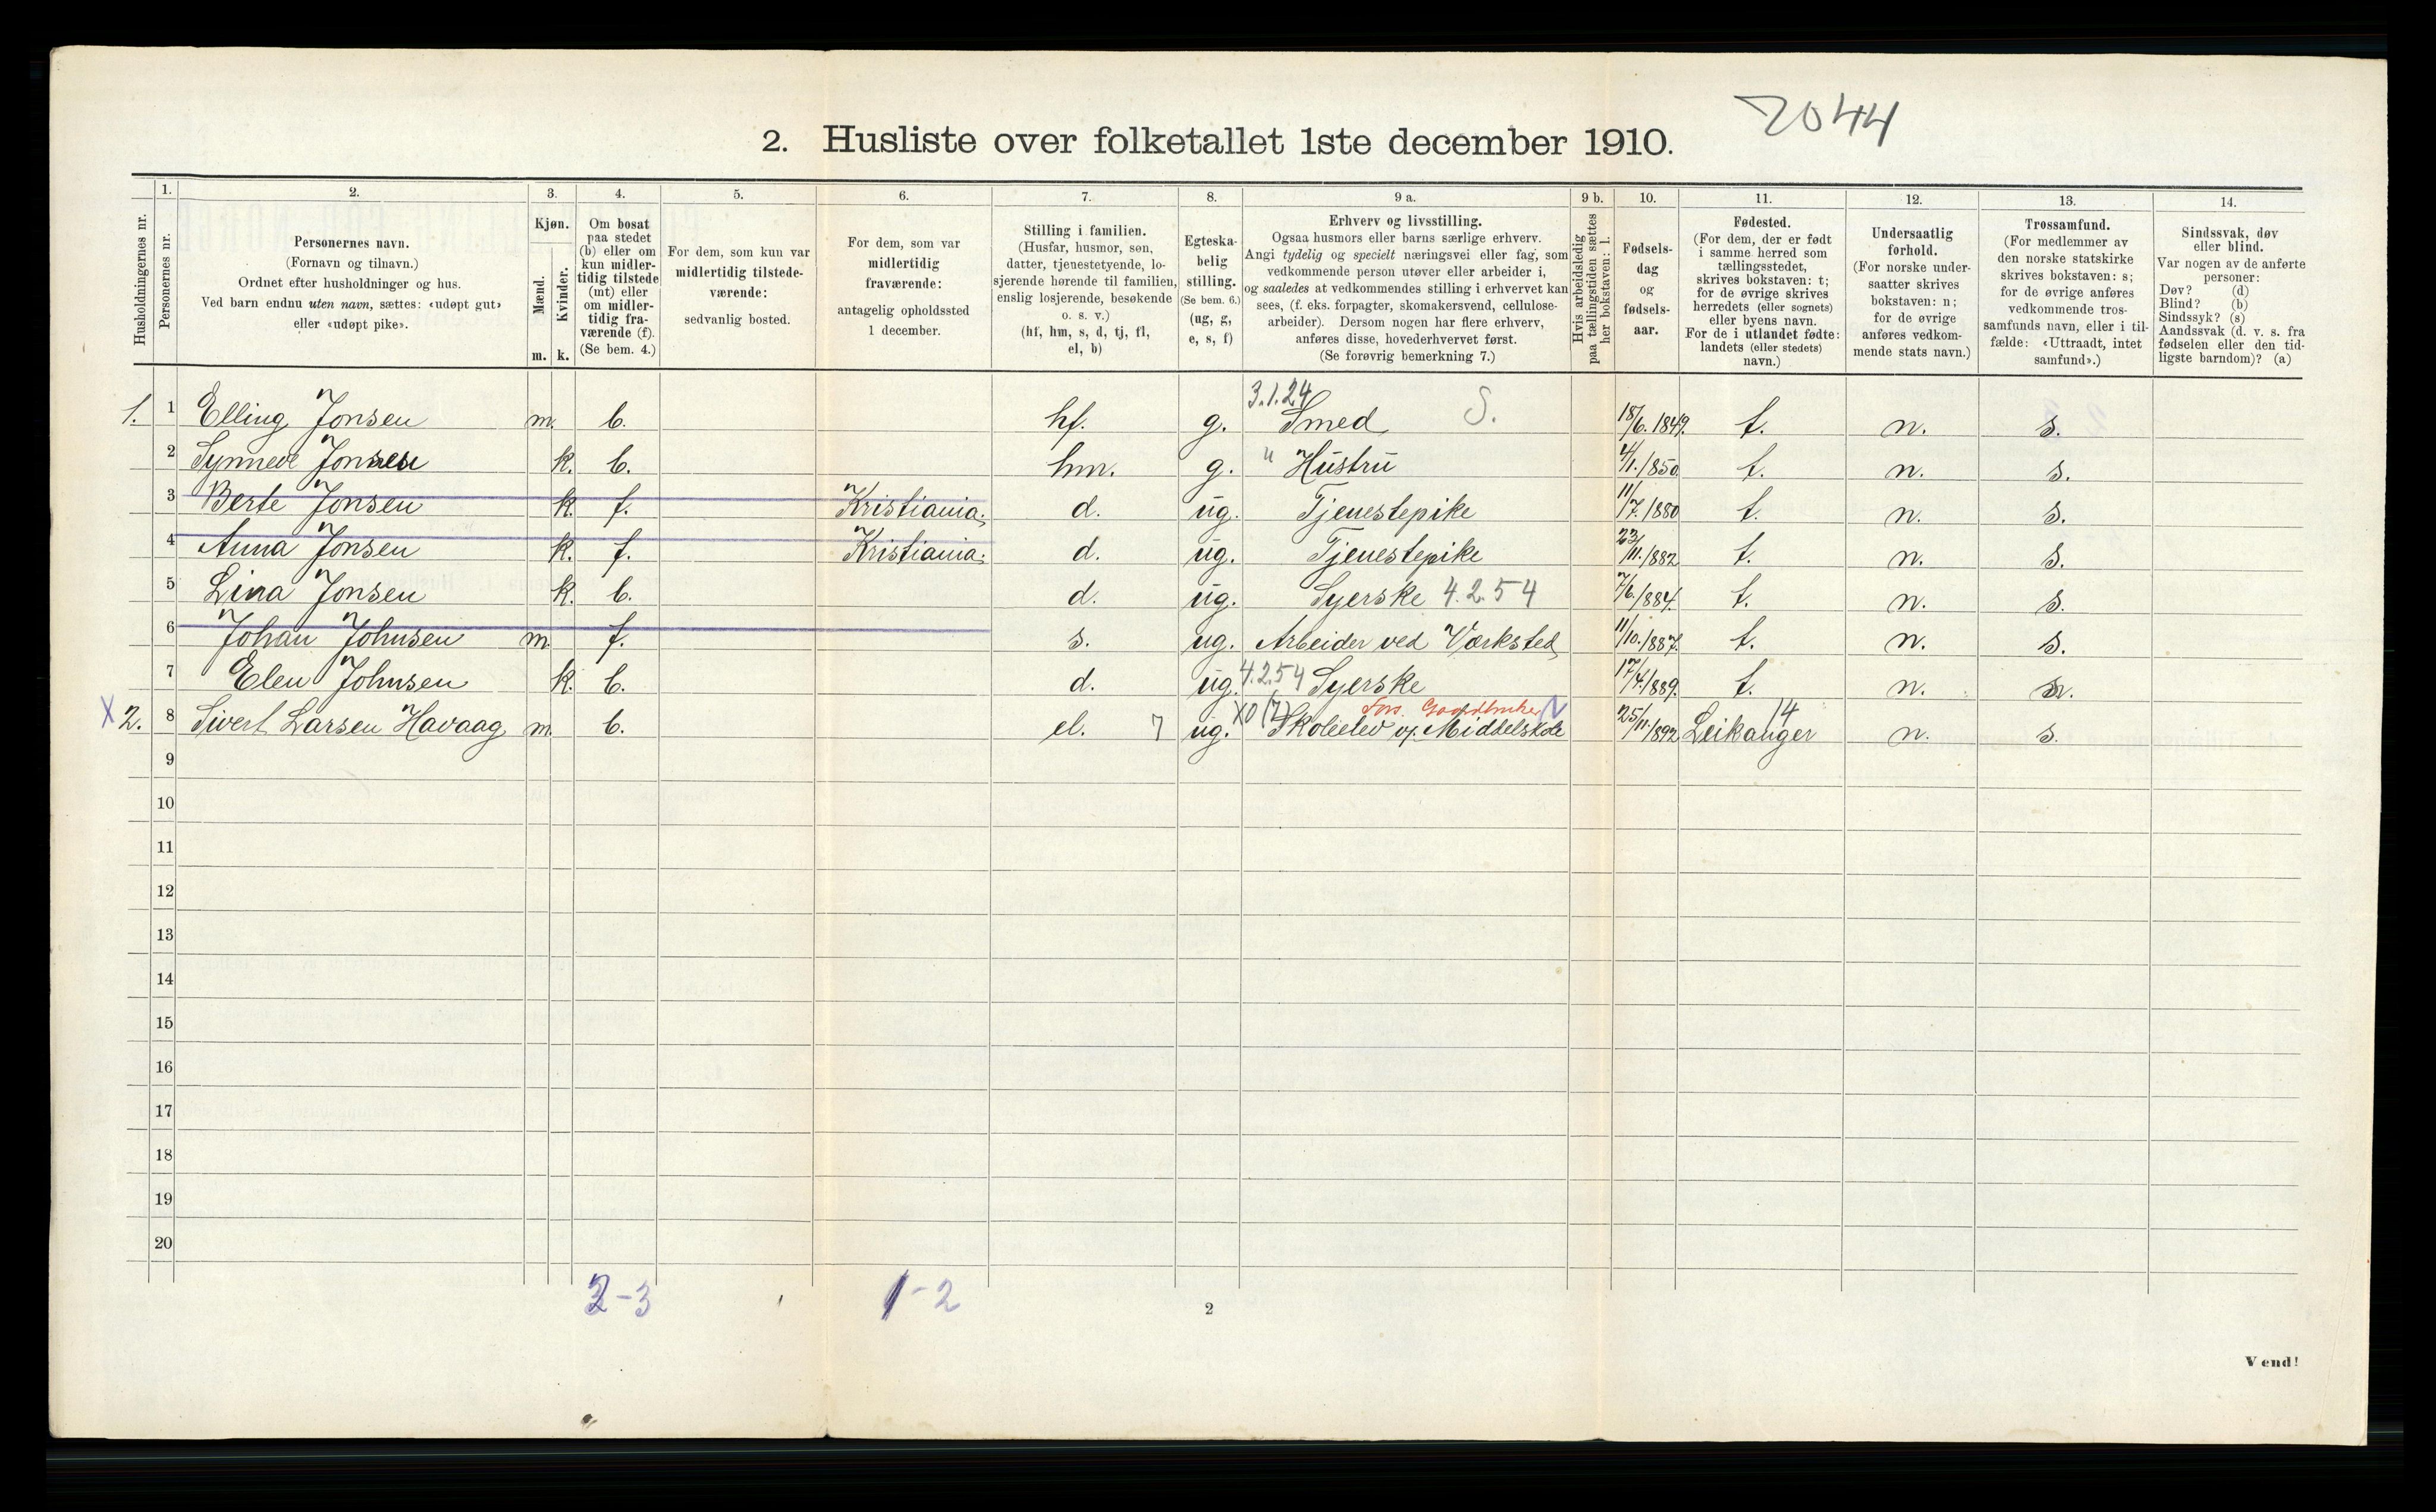 2044
2. Husliste over folketallet 1ste december 1910.
Husholdningernes nr.
1. Personernes nr.
2. Personernes navn.
(Fornavn og tilnavn.)
Ordnet efter husholdninger og hus.
Ved barn endnu uten navn, sættes: «udøpt gut»
eller «udøpt pike».
3. Kjøn.
Mænd. m.
Kvinder. k.
4. Om bosat
paa stedet
(b) eller om
kun midler-
tidig tilstede
(mt) eller
om midler-
tidig fra-
værende (f).
(Se bem. 4.)
5. For dem, som kun var
midlertidig tilstede-
værende:
sedvanlig bosted.
6. For dem, som var
midlertidig
fraværende:
antagelig opholdssted
1 december.
7. Stilling i familien.
(Husfar, husmor, søn,
datter, tjenestetyende, lo-
sjerende hørende til familien,
enslig losjerende, besøkende
o. s. v.)
(hf, hm, s, d, tj, fl,
el, b)
8. Egteska-
belig
stilling.
(Se bem. 6.)
(ug, g,
e, s, f)
9 a. Erhverv og livsstilling.
Ogsaa husmors eller barns særlige erhverv.
Angi tydelig og specielt næringsvei eller fag, som
vedkommende person utøver eller arbeider i,
og saaledes at vedkommendes stilling i erhvervet kan
sees, (f. eks. forpagter, skomakersvend, cellulose-
arbeider). Dersom nogen har flere erhverv,
anføres disse, hovederhvervet først.
(Se forøvrig bemerkning 7.)
9 b. Hvis arbeidsledig
paa tællingstiden sættes
her bokstaven: l.
10. Fødsels-
dag
og
fødsels-
aar.
11. Fødested.
(For dem, der er født
i samme herred som
tællingsstedet,
skrives bokstaven: t;
for de øvrige skrives
herredets (eller sognets)
eller byens navn.
For de i utlandet fødte:
landets (eller stedets)
navn.)
12. Undersaatlig
forhold.
(For norske under-
saatter skrives
bokstaven: n;
for de øvrige
anføres vedkom-
mende stats navn.)
13. Trossamfund.
(For medlemmer av
den norske statskirke
skrives bokstaven: s;
for de øvrige anføres
vedkommende tros-
samfunds navn, eller i til-
fælde: «Uttraadt, intet
samfund».)
14. Sindssvak, døv
eller blind.
Var nogen av de anførte
personer:
Døv? (d)
Blind? (b)
Sindssyk? (s)
Aandssvak (d. v. s. fra
fødselen eller den tid-
ligste barndom)? (a)
3.1.24
1. 1 Elling Jonsen m. b. hf. g. Smed S. 18/6. 1849. t. n. s.
2 Synneve Jonsen k. b. hm. g. " Hustru 4/1. 1850. t. n. s.
3 Berte Jonsen k. f. Kristiania. d. ug. Tjenestepike 11/7. 1880 t. n. s.
4 Anna Jonsen k. f. Kristiania. d. ug. Tjenestepike 23/11. 1882 t. n. s.
5 Lina Jonsen k. b. d. ug. Syerske 4.2.54 7/6. 1884. t. n. s.
6 Johan Johnsen m. f. s. ug. Arbeider ved Værksted 11/10. 1887. t. n. s.
7 Elen Johnsen k. b. d. ug. 4.2.54 Syerske 17/4. 1889. t. n. s.
Fors. Gaardbruker 14
X 2. 8 Sivert Larsen Havaag m. b. el. 7 ug. X0 (7) Skoleelev v. Middelskole 25/11. 1892 Leikanger n. s.
9
10
11
12
13
14
15
16
17
18
19
20
2-3 1-2
2
Vend!